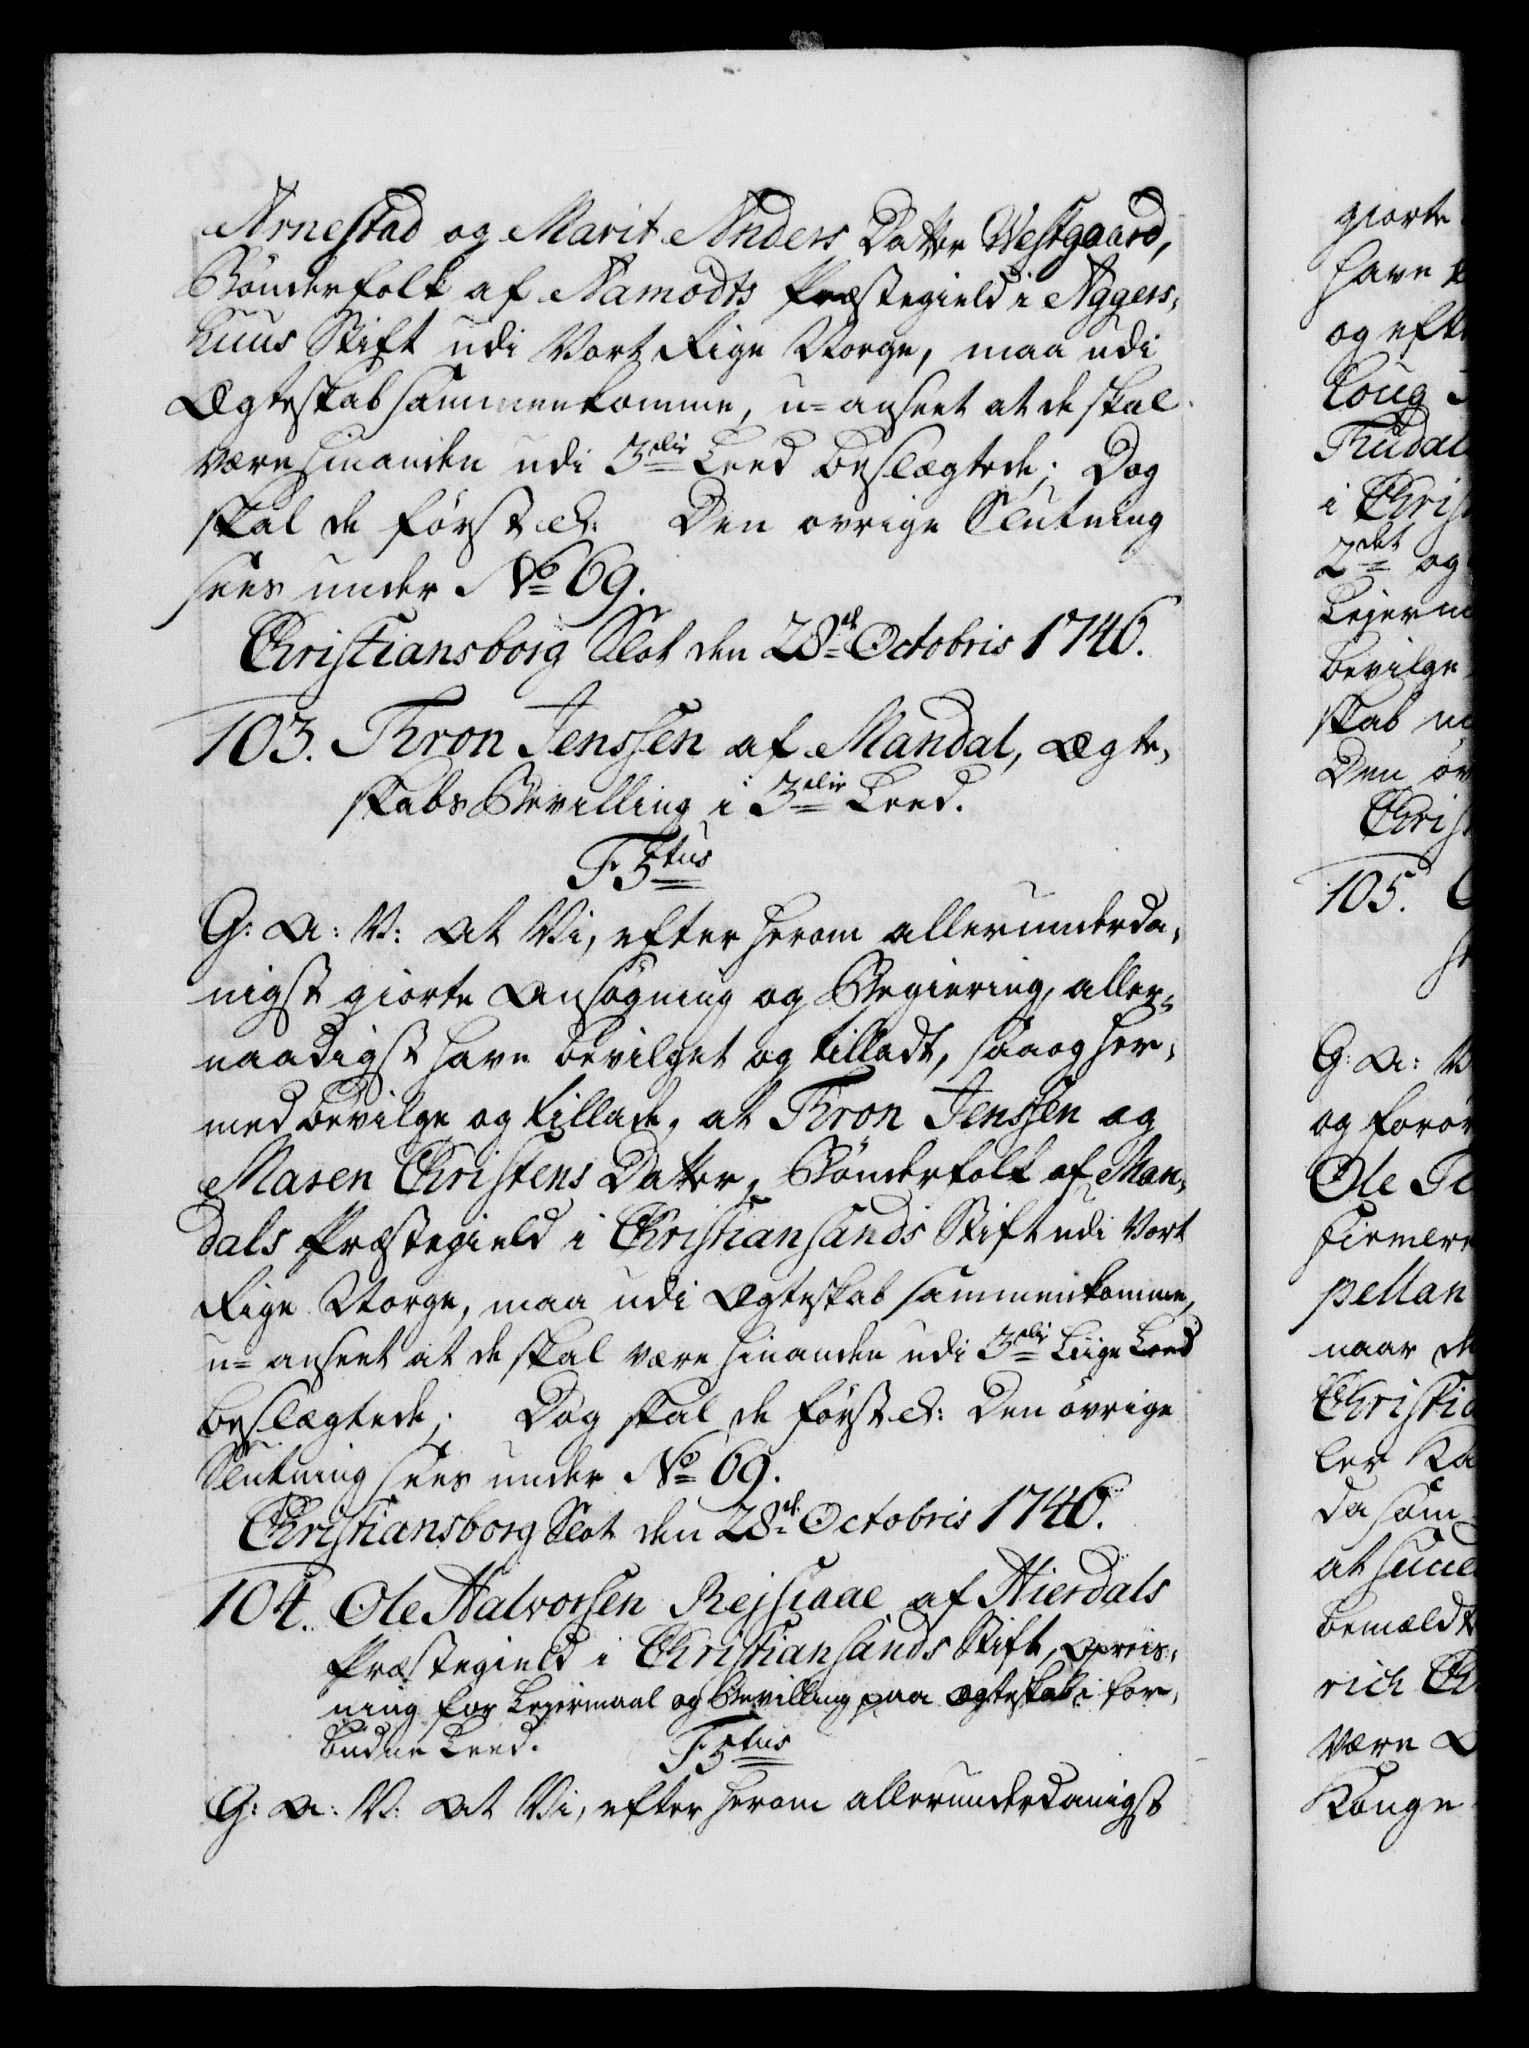 Arnestad og Marit Anders Datter Westgaard,
Bønderfolk af Aamodts Præstegield i Aggers-
huus Stift udi Vort Rige Norge, maa udi
Ægteskab sammenkomme, u-anseet at de skal
være hinanden udi 3die Leed beslægtede; Dog
skal de først &: Den øvrige Slutning
sees under No 69.
Christiansborg Slot den 28de Octobris 1746.
103. Thron Jenssen af Mandal, Ægte-
skabs Bevilling i 3die Leed.
F5tus
G: A: V: At Vi, efter herom allerunderda-
nigst giorte Ansøgning og Begiering, aller-
naadigst have bevilget og tilladt, saa og her-
med bevilge og tillade, at Thron Jenssen og
Maren Christens Datter, Bønderfolk af Man-
dals Præstegield i Christiansands Stift udi Vort
Rige Norge, maa udi Ægteskab sammenkomme,
u-anseet at de skal være hinanden udi 3die Liige Leed
beslægtede; Dog skal de først &: Den øvrige
Slutning sees under No 69.
Christiansborg Slot den 28de Octobris 1746.
104. Ole Halvorsen Rejsiaae af Hierdals
Præstegield i Christiansands Stift, Opreis-
ning for Lejermaal og Bevilling paa Ægteskab i for-
budne Leed. F5tus
G: A: V: At Vi, efter herom allerunderdanigst
giorte
have
og efter
loug
i Chris
2det og
Lejerm
bevilge
skab
Den øv
Chris
105.
G: A: V
og foror
Ole
pellan
naar de
Christia
ler Ka
da som
at succe
bemældt
rich Ch
være
Konge